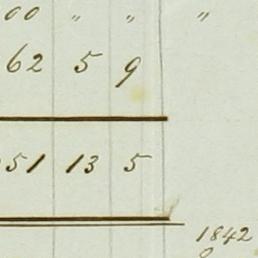 00 " " "
62 5 9
51 13 5
1842